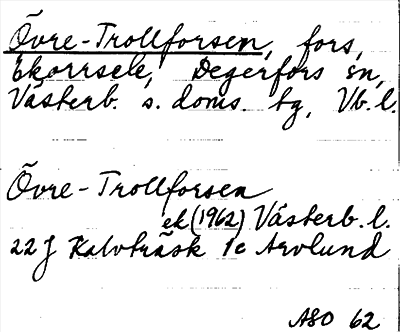 Övre-Trollforsen, fors,
Ekorrsele, Degerfors sn,
Västerb. s. doms. tg, Vb. l.
Övre-Trollforsen
ek (1962) Västerb. l.
22 J Kalvträsk 1c Arvlund
ASO 62